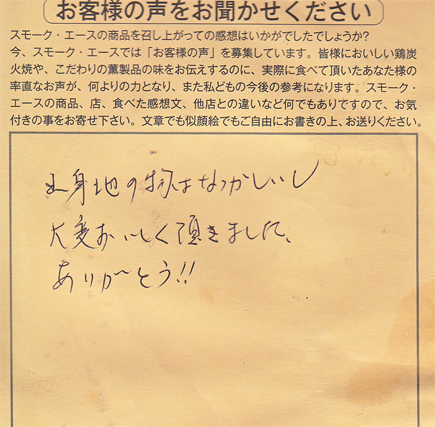 お客様の声をお聞かせください
スモーク・エースの商品を召し上がっての感想はいかがでしたでしょうか?
今、スモーク・エースでは「お客様の声」を募集しています。皆様においしい鶏炭
火焼や、こだわりの薫製品の味をお伝えするのに、実際に食べて頂いたあなた様の
率直なお声が、何よりの力となり、また私どもの今後の参考になります。スモーク・
エースの商品、店、食べた感想文、他店との違いなど何でもありですので、お気
付きの事をお寄せ下さい。文章でも似顔絵でもご自由にお書きの上、お送りください。
出身地の物はなつかしいし
大変おいしく頂きました、
ありがとう!!